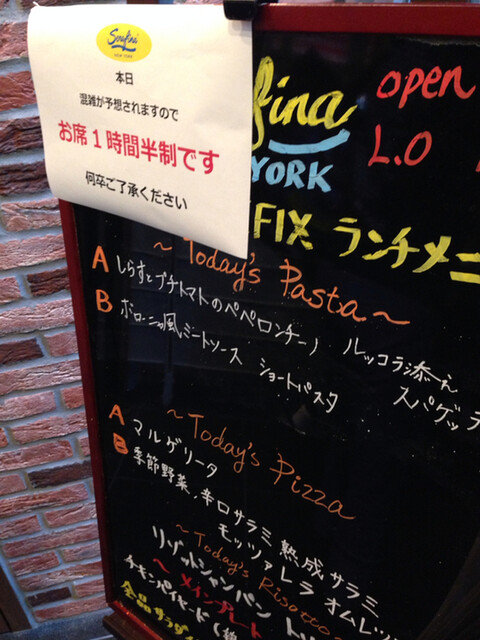 Serafina
NEW YORK
本日
混雑が予想されますので
お席1時間半制です
何卒ご了承ください
fina
open
YORK
L.O
FIX ランチメニ
~Today's Pasta~
A しらすとプチトマトのペペロンチーノ ルッコラ添え
スパゲッテ
B ボローニャ風ミートソース ショートパスタ
~Today's Pizza
A マルゲリータ
B 季節野菜、辛口サラミ 熟成サラミ
モッツァレラ オムレツ
~Today's Risotto
リゾットシャンパン
~メインプレート
全品サラダ